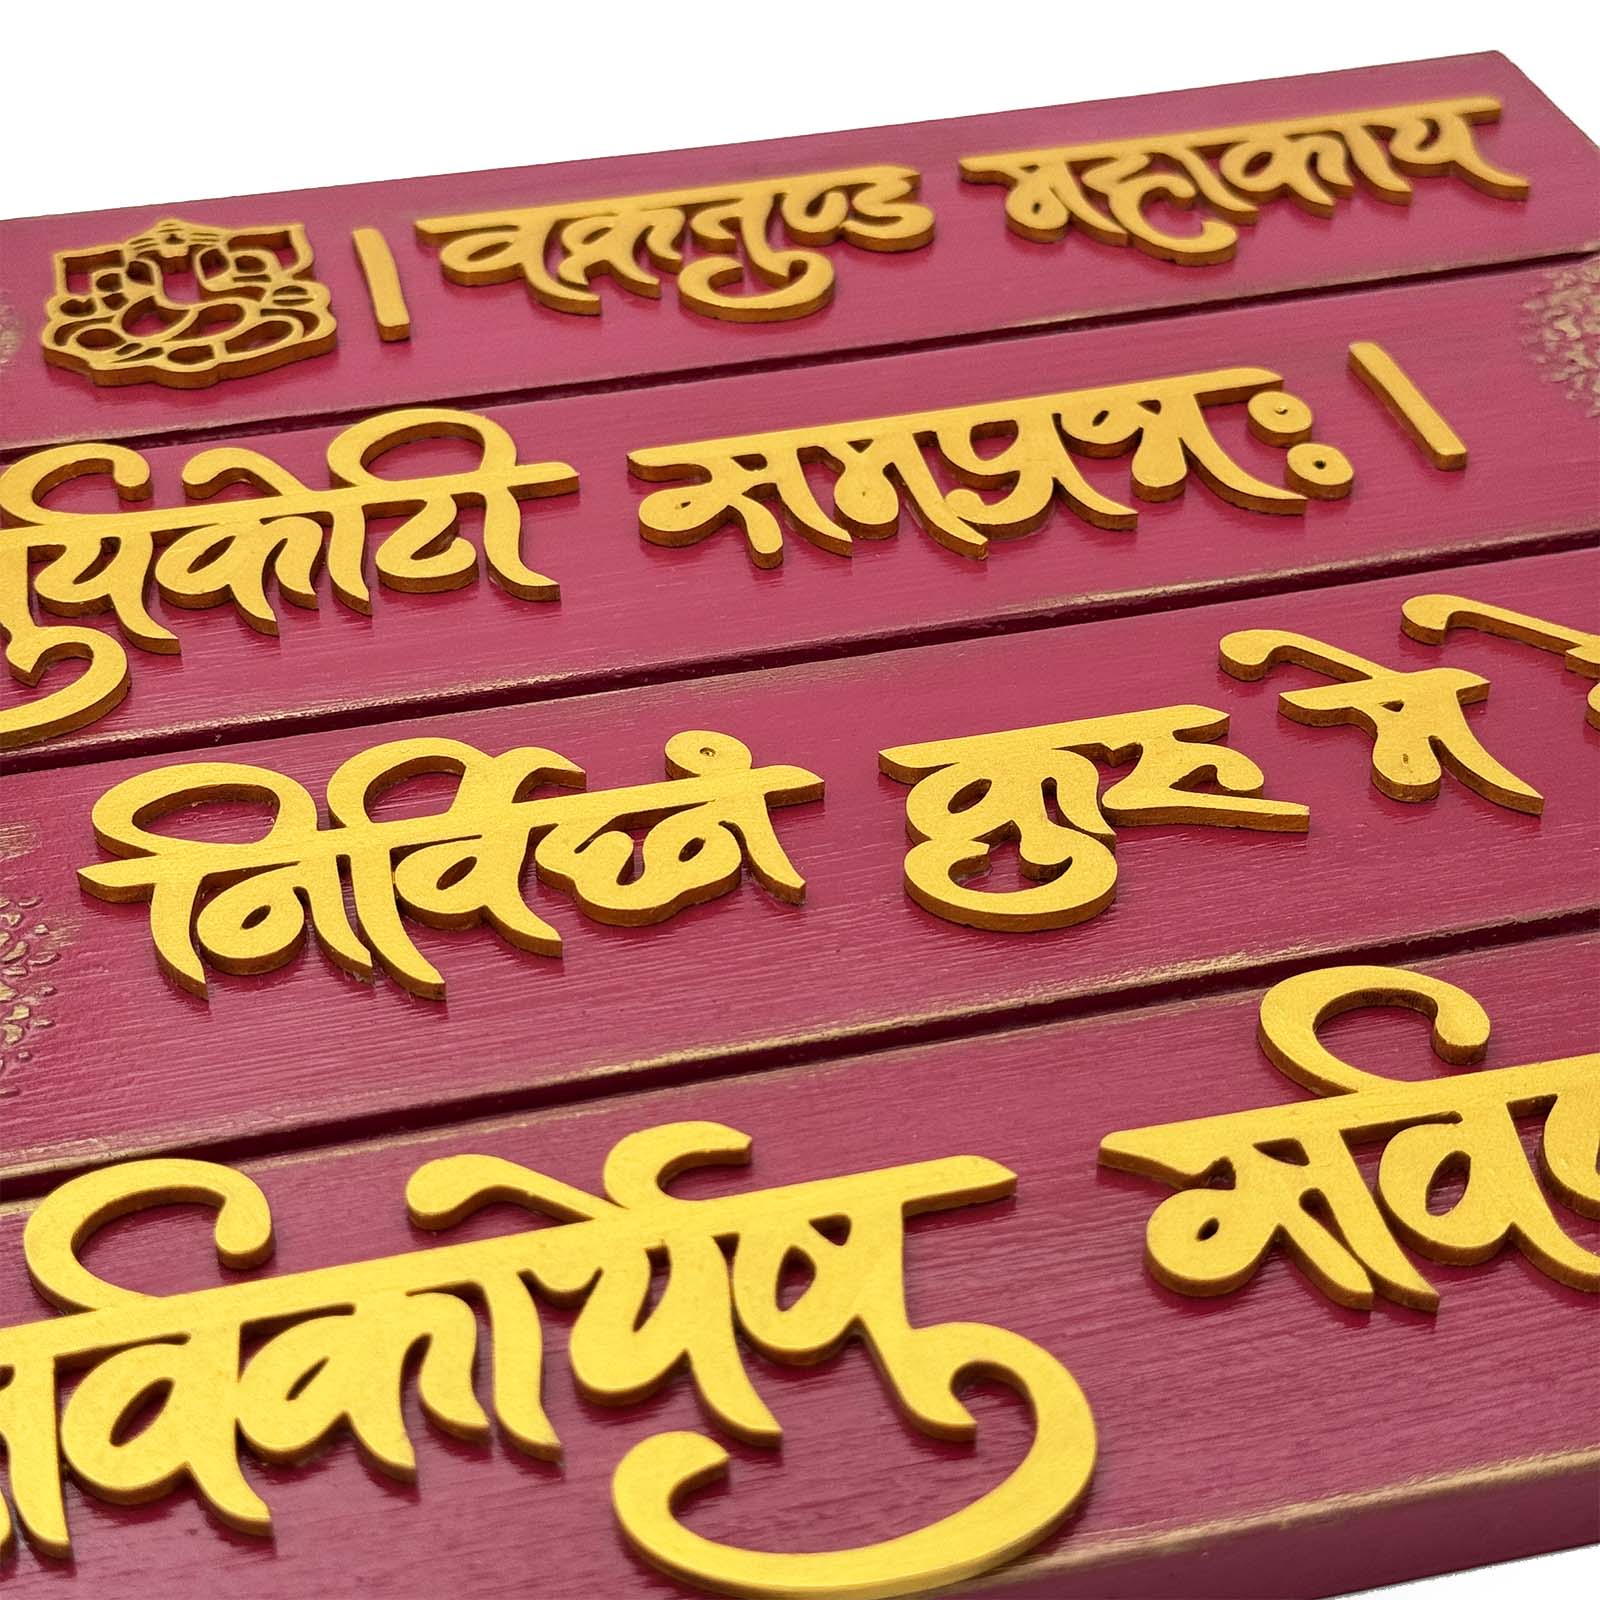 | वक्रतुण्ड महाकाय
ूर्यकोटी समप्रभः |
निर्विघ्नं कुरु मे
र्वकार्येषु सर्व